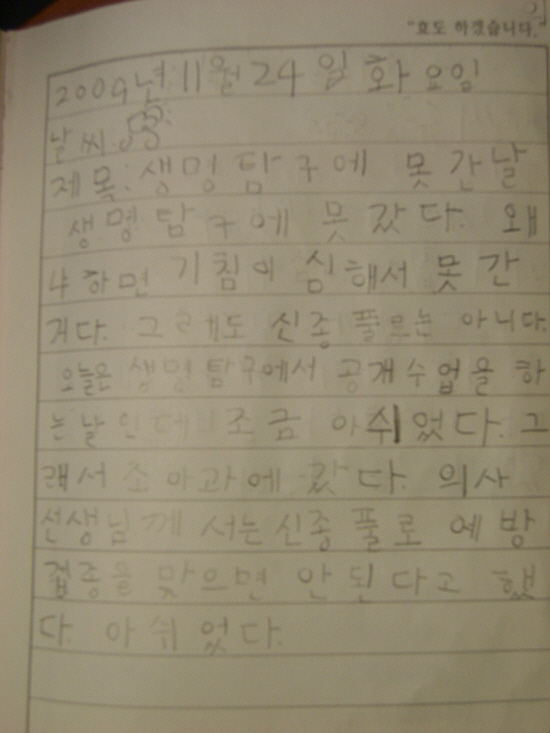 "효도 하겠습니다."
2009년 11월 24일 화요일
날씨:
제목: 생명탐구에 못 간날
생명탐구에 못 갔다. 왜
냐하면 기침이 심해서 못 간
거다. 그래도 신종 플르는 아니다.
오늘은 생명탐구에서 공개수업을 하
는 날인데 조금 아쉬웠다. 그
래서 소아과에 갔다. 의사
선생님께서는 신종 풀로 예방
접종을 맞으면 안 된다고 했
다. 아쉬었다.